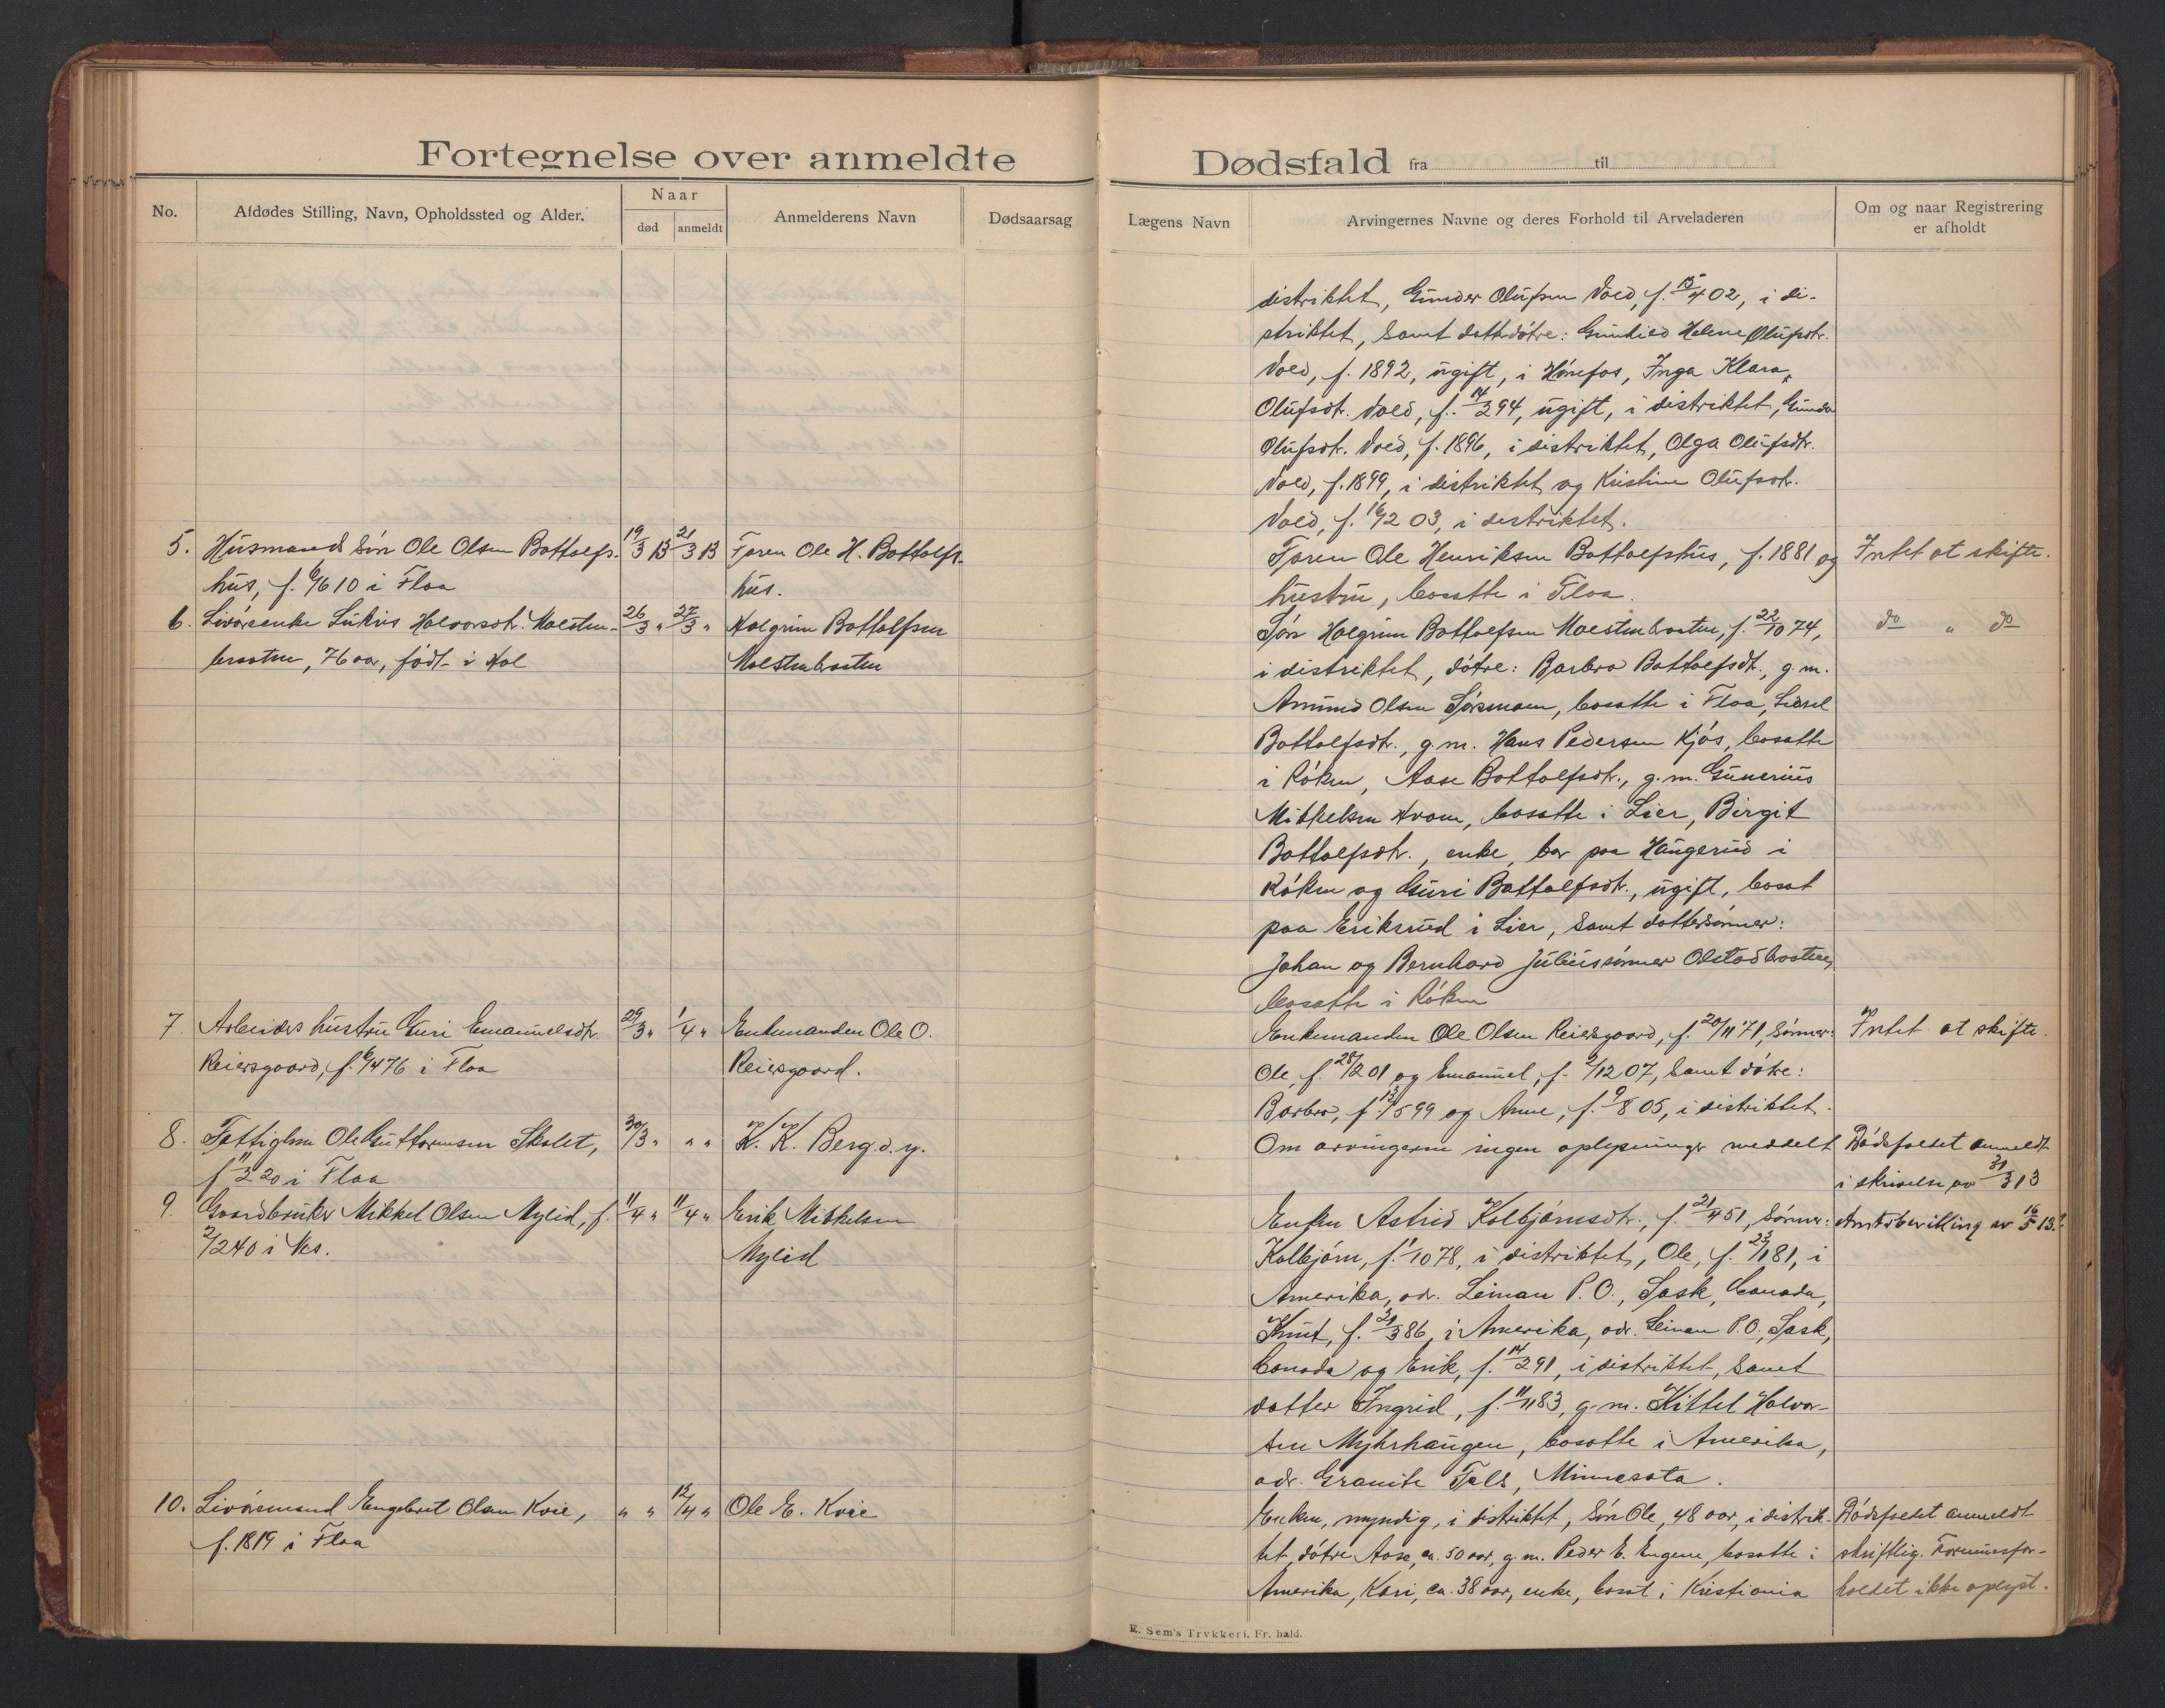 Fortegnelse over anmeldte Dødsfald fra til
No.
Afdødes Stilling, Navn, Opholdssted og Alder.
Naar
død
anmeldt
Anmelderens Navn
Dødsaarsag
Lægens Navn
Arvingernes Navne og deres Forhold til Arveladeren
Om og naar Registrering
er afholdt
distriktet, Gunder Olufsen Vold, f. 15/4 02, i di-
striktet, samt datterdøtre: Gunhild Helene Olufsdtr.
Vold, f. 1892, ugift, i Hønefos, Inga Klara
Olufsdt. Vold, f. 14/2 94, ugift, i distriktet, Gunda
Olufsdt. Vold, f. 1896, i distriktet, Olga Olufsdtr.
Vold, f. 1899, i distriktet og Kristine Olufsdt.
Vold, f. 16/12 03, i distriktet.
5. Husmands søn Ole Olsen Bottolfs- 19/3 13 21/3 13 Faren Ole H. Bottolfs-
hus, f. 6/6 10 i Flaa
hus.
Faren Ole Henriksen Bottolfshus, f. 1881 og
hustru, bosatte i Flaa.
Intet at skifte.
6. Livørsenke Halvorsdt. 26/3 " 27/3 " Halgrim Bottolfsen
braaten, 76 aar, født i Hol
Søn Halgrim Bottolfsen f. 22/10 74,
do " do
i distriktet, døtre: Barbro Bottolfsdt., g. m.
Amund Olsen Sørsmoen, bosatte i Flaa, Sidsel
Bottolfsdt., g. m. Hans Pedersen Kjøs, bosatte
i Røken, Aase Bottolfsdt., g. m. Gunerius
Mikkelsen bosatte i Lier, Birgit
Bottolfsdt., enke, bor paa Haugerud i
Røken og Guri Bottolfsdt., ugift, bosat
paa Eriksrud i Lier, samt dattersønner:
Johan og Bernhard Juliussønner Olstadbraaten,
bosatte i Røken
7. Arbeiders hustru Guri Emanuelsdtr. 29/3 " 1/4 " Enkemanden Ole O.
Reiersgaard, f. 6/4 76 i Flaa
Reiersgaard.
Enkemanden Ole Olsen Reiersgaard, f. 20/11 71, sønner:
Intet at skifte.
Ole, f. 28/2 01 og Emanuel, f. 2/12 07, samt døtre:
Barbro, f. 13/5 99 og Anne, f. 9/8 05, i distriktet.
8. Fattiglem Ole Guttormsen Skolet, 30/3 " " " K. K. Berg d. y.
f. 11/2 20 i Flaa
Om arvingerne ingen oplysninger meddelt
Dødsfaldet anmeldt
i skrivelse av 31/3 13
9. Gaardbruker Mikkel Olsen Mylid, f. 11/4 " 11/4 " Erik Mikkelsen
2/2 40 i Nes.
Mylid
Enken Astrid Kolbjørnsdt., f. 21/4 51, sønner:
Amtsbevilling av 16/5 13.
Kolbjørn, f. 1/10 78, i distriktet, Ole, f. 23/1 81, i
Amerika, adr. Leinan P. O., Sask, Canada,
Knut, f. 31/3 86, i Amerika, adr. Leinan P. O., Sask,
Canada og Erik, f. 14/2 91, i distriktet, samt
datter Ingrid, f. 11/11 83, g. m. Kittel Halvor-
sen Myhrhaugen, bosatte i Amerika,
adr. Granite Falls, Minnesota.
10. Livørsmand Engebret Olsen Kvie, " " 12/4 " Ole E. Kvie
f. 1819 i Flaa
Enken, myndig, i distriktet, søn Ole, 48 aar, i distrik-
tet, døtre Aase, ca. 50 aar, g. m. Peder E. Engene, bosatte i
Amerika, Kari, ca. 38 aar, enke, bosat i Kristiania
Dødsfaldet anmeldt
skriftlig. Formuesfor-
holdet ikke oplyst.
E. Sem's Trykkeri. Fr. hald.